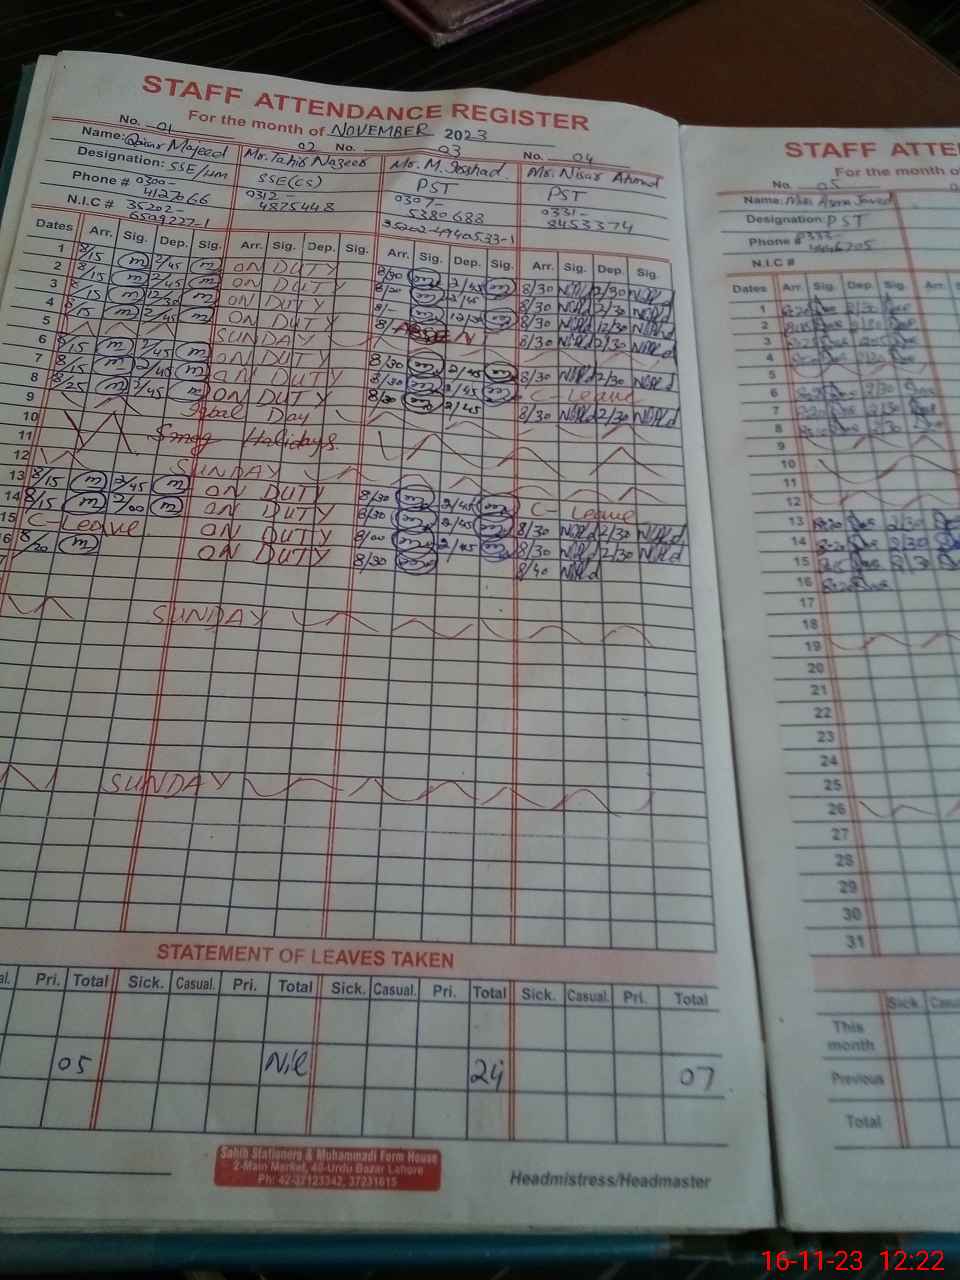 STAFF ATTENDANCE REGISTER
For the month of NOVEMBER 2023
No. 01 02 No. 03 No. 04
Name: Qaisar Majeed Mr. Tahir Nazeer Mr. M. Irshad. Mr. Nisar Ahmad
Designation: SSE/HM SSE(CS) PST PST
Phone # 0300- 0312- 0307- 0331-
4127066 4875448 5380688 8453374
N.I.C # 35202- 35202-4940533-1
6509227-1
Dates Arr. Sig. Dep. Sig. Arr. Sig. Dep. Sig. Arr. Sig. Dep. Sig. Arr. Sig. Dep. Sig.
1 8/15 2/45 ON DUTY 8/30 2/45 8/30 2/30
2 8/15 2/45 ON DUTY 8/30 2/45 8/30 2/30
3 8/15 12/30 ON DUTY 12/30 8/30 12/30
4 8/15 2/45 ON DUTY ABSENT 8/30 2/30
5 SUNDAY
6 8/15 2/45 ON DUTY 8/30 2/45 8/30 2/30
7 8/15 2/45 ON DUTY 8/30 2/45 C-Leave
8 8/25 2/45 ON DUTY 8/30 2/45 8/30 2/30
9 Iqbal Day
10 Smog Halidays.
11
12 SUNDAY
13 8/15 2/45 ON DUTY 8/30 2/45 C-Leave
14 8/15 2/00 ON DUTY 8/30 2/45 8/30 2/30
15 C-Leave ON DUTY 8/00 2/45 8/30 2/30
16 8/20 ON DUTY 8/30 8/40
SUNDAY
SUNDAY
STATEMENT OF LEAVES TAKEN
Pri. Total Sick. Casual. Pri. Total Sick. Casual. Pri. Total Sick. Casual. Pri. Total
05 Nil 24 07
Sahib Stationers & Muhammadi Form House
2-Main Market, 40-Urdu Bazar Lahore
Ph: 42-37123342, 37231615
Headmistress/Headmaster
STAFF ATTE
For the month o
No. 05
Name: Miss Asma Javed
Designation: PST
Phone #
N.I.C #
Dates Arr. Sig. Dep. Sig. Arr. S
1
2
3
4
5
6
7
8
9
10
11
12
13
14
15
16
17
18
19
20
21
22
23
24
25
26
27
28
29
30
31
Sick. Casu
This
month
Previous
Total
16-11-23 12:22